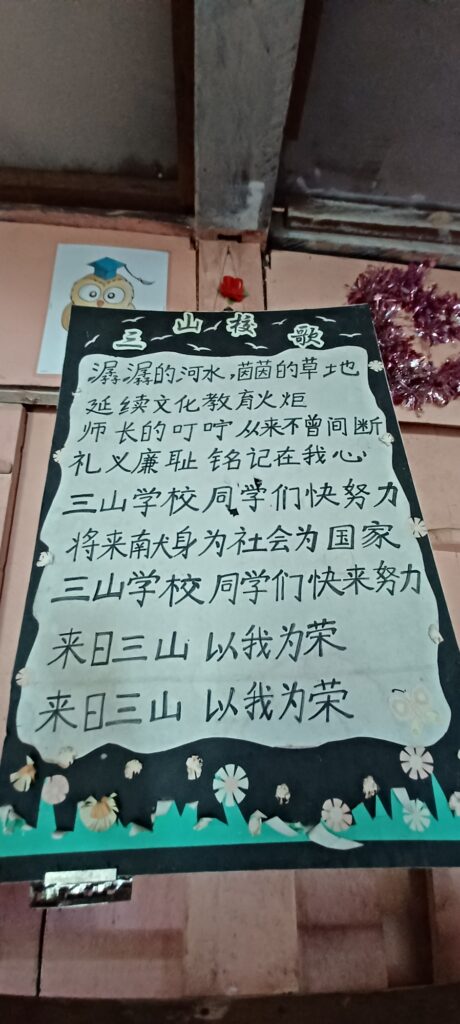 三山校歌
潺潺的河水，茵茵的草地
延续文化教育火炬
师长的叮咛 从来不曾间断
礼义廉耻 铭记在我心
三山学校 同学们快努力
将来献身为社会为国家
三山学校 同学们快来努力
来日三山 以我为荣
来日三山 以我为荣